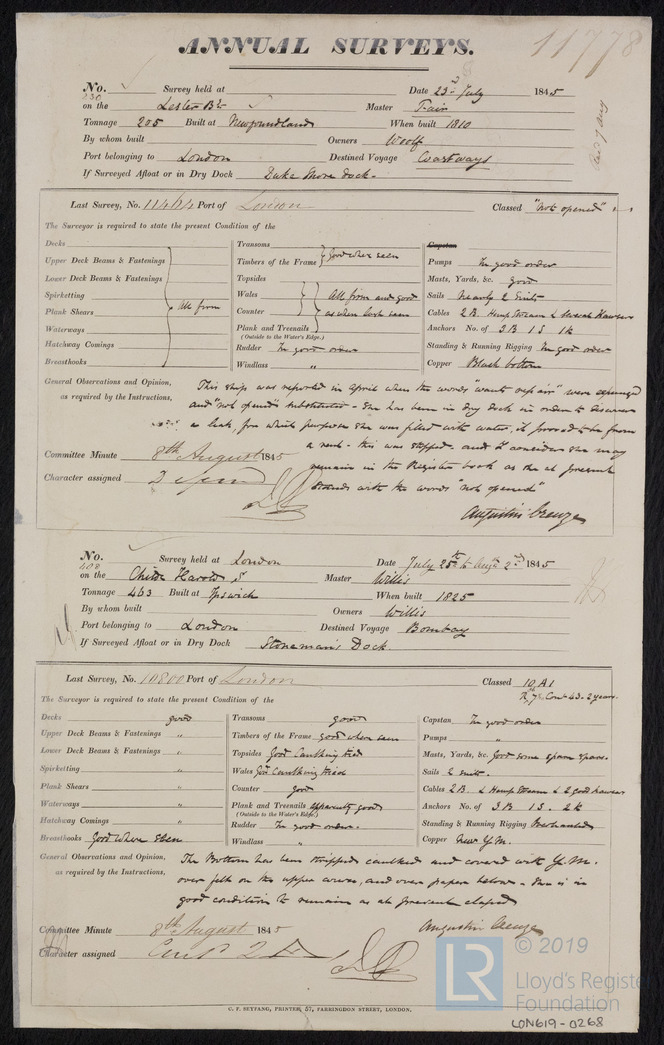 ANNUAL SURVEYS.
11778
No. Survey held at Date 23rd July 1845
230
on the Lester Bk Master Fair
Tonnage 205 Built at Newfoundland When built 1810
By whom built Owners Woolf
Port belonging to London Destined Voyage Coastways
If Surveyed Afloat or in Dry Dock Duke Shore dock.
Last Survey, No. Port of London Classed "not opened"
The Surveyor is required to state the present Condition of the
Decks
Upper Deck Beams & Fastenings
Lower Deck Beams & Fastenings
Spirketting
Plank Shears
All firm
Waterways
Hatchway Comings
Breasthooks
Transoms
Timbers of the Frame
good where seen
Topsides
Wales
Counter
All firm and good
as when last seen
Plank and Treenails
(Outside to the Water's Edge.)
Rudder In good order
Windlass "
Capstan
Pumps In good order
Masts, Yards, &c. good
Sails Nearly 2 Suits
Cables 2 B. Hemp Stream & several Hawsers
Anchors No. of 3 B 1 S 1 K
Standing & Running Rigging In good order
Copper Black bottom
General Observations and Opinion,
as required by the Instructions,
This ship was reported in April when the words "wants repair" were expunged
and "not opened" substituted - She has been in dry dock in order to discover
a leak, for which purpose she was filled with water, it proved to be from
a rent - this was stopped. and I consider she may
remain in the Register book as she at present
stands with the words "not opened"
Augustin Creuze
Committee Minute 8th August 1845
Character assigned
No. Survey held at London Date July 25th to Augt 2nd 1845
408
on the Childe Harold S Master Willis
Tonnage 463 Built at Ipswich When built 1825
By whom built Owners Willis
Port belonging to London Destined Voyage Bombay
If Surveyed Afloat or in Dry Dock Stoneman's Dock.
Last Survey, No. 10800 Port of London Classed 10 A1
Cont 43. 2 years.
The Surveyor is required to state the present Condition of the
Decks good
Upper Deck Beams & Fastenings "
Lower Deck Beams & Fastenings "
Spirketting "
Plank Shears "
Waterways "
Hatchway Comings "
Breasthooks Good where Seen
Transoms good
Timbers of the Frame good where seen
Topsides Good Caulking tried
Wales Good Caulking tried
Counter good
Plank and Treenails apparently good
(Outside to the Water's Edge.)
Rudder In good order.
Windlass "
Capstan In good order
Pumps "
Masts, Yards, &c. Good some spare spars.
Sails 2 suits.
Cables 2 B. & Hemp Stream & 2 good hawsers
Anchors No. of 3 B 1 S. 2 K
Standing & Running Rigging Overhauled
Copper New Y.M.
General Observations and Opinion,
as required by the Instructions,
The Bottom has been stripped caulked and covered with Y.M.
over felt on the upper courses, and over paper below - She is in
good condition to remain as at present classed
Augustin Creuze
Committee Minute 8th August 1845
Character assigned
C. F. SEYFANG, PRINTER, 57, FARRINGDON STREET, LONDON.
LR © 2019
Lloyd's Register
Foundation
LON619-0268